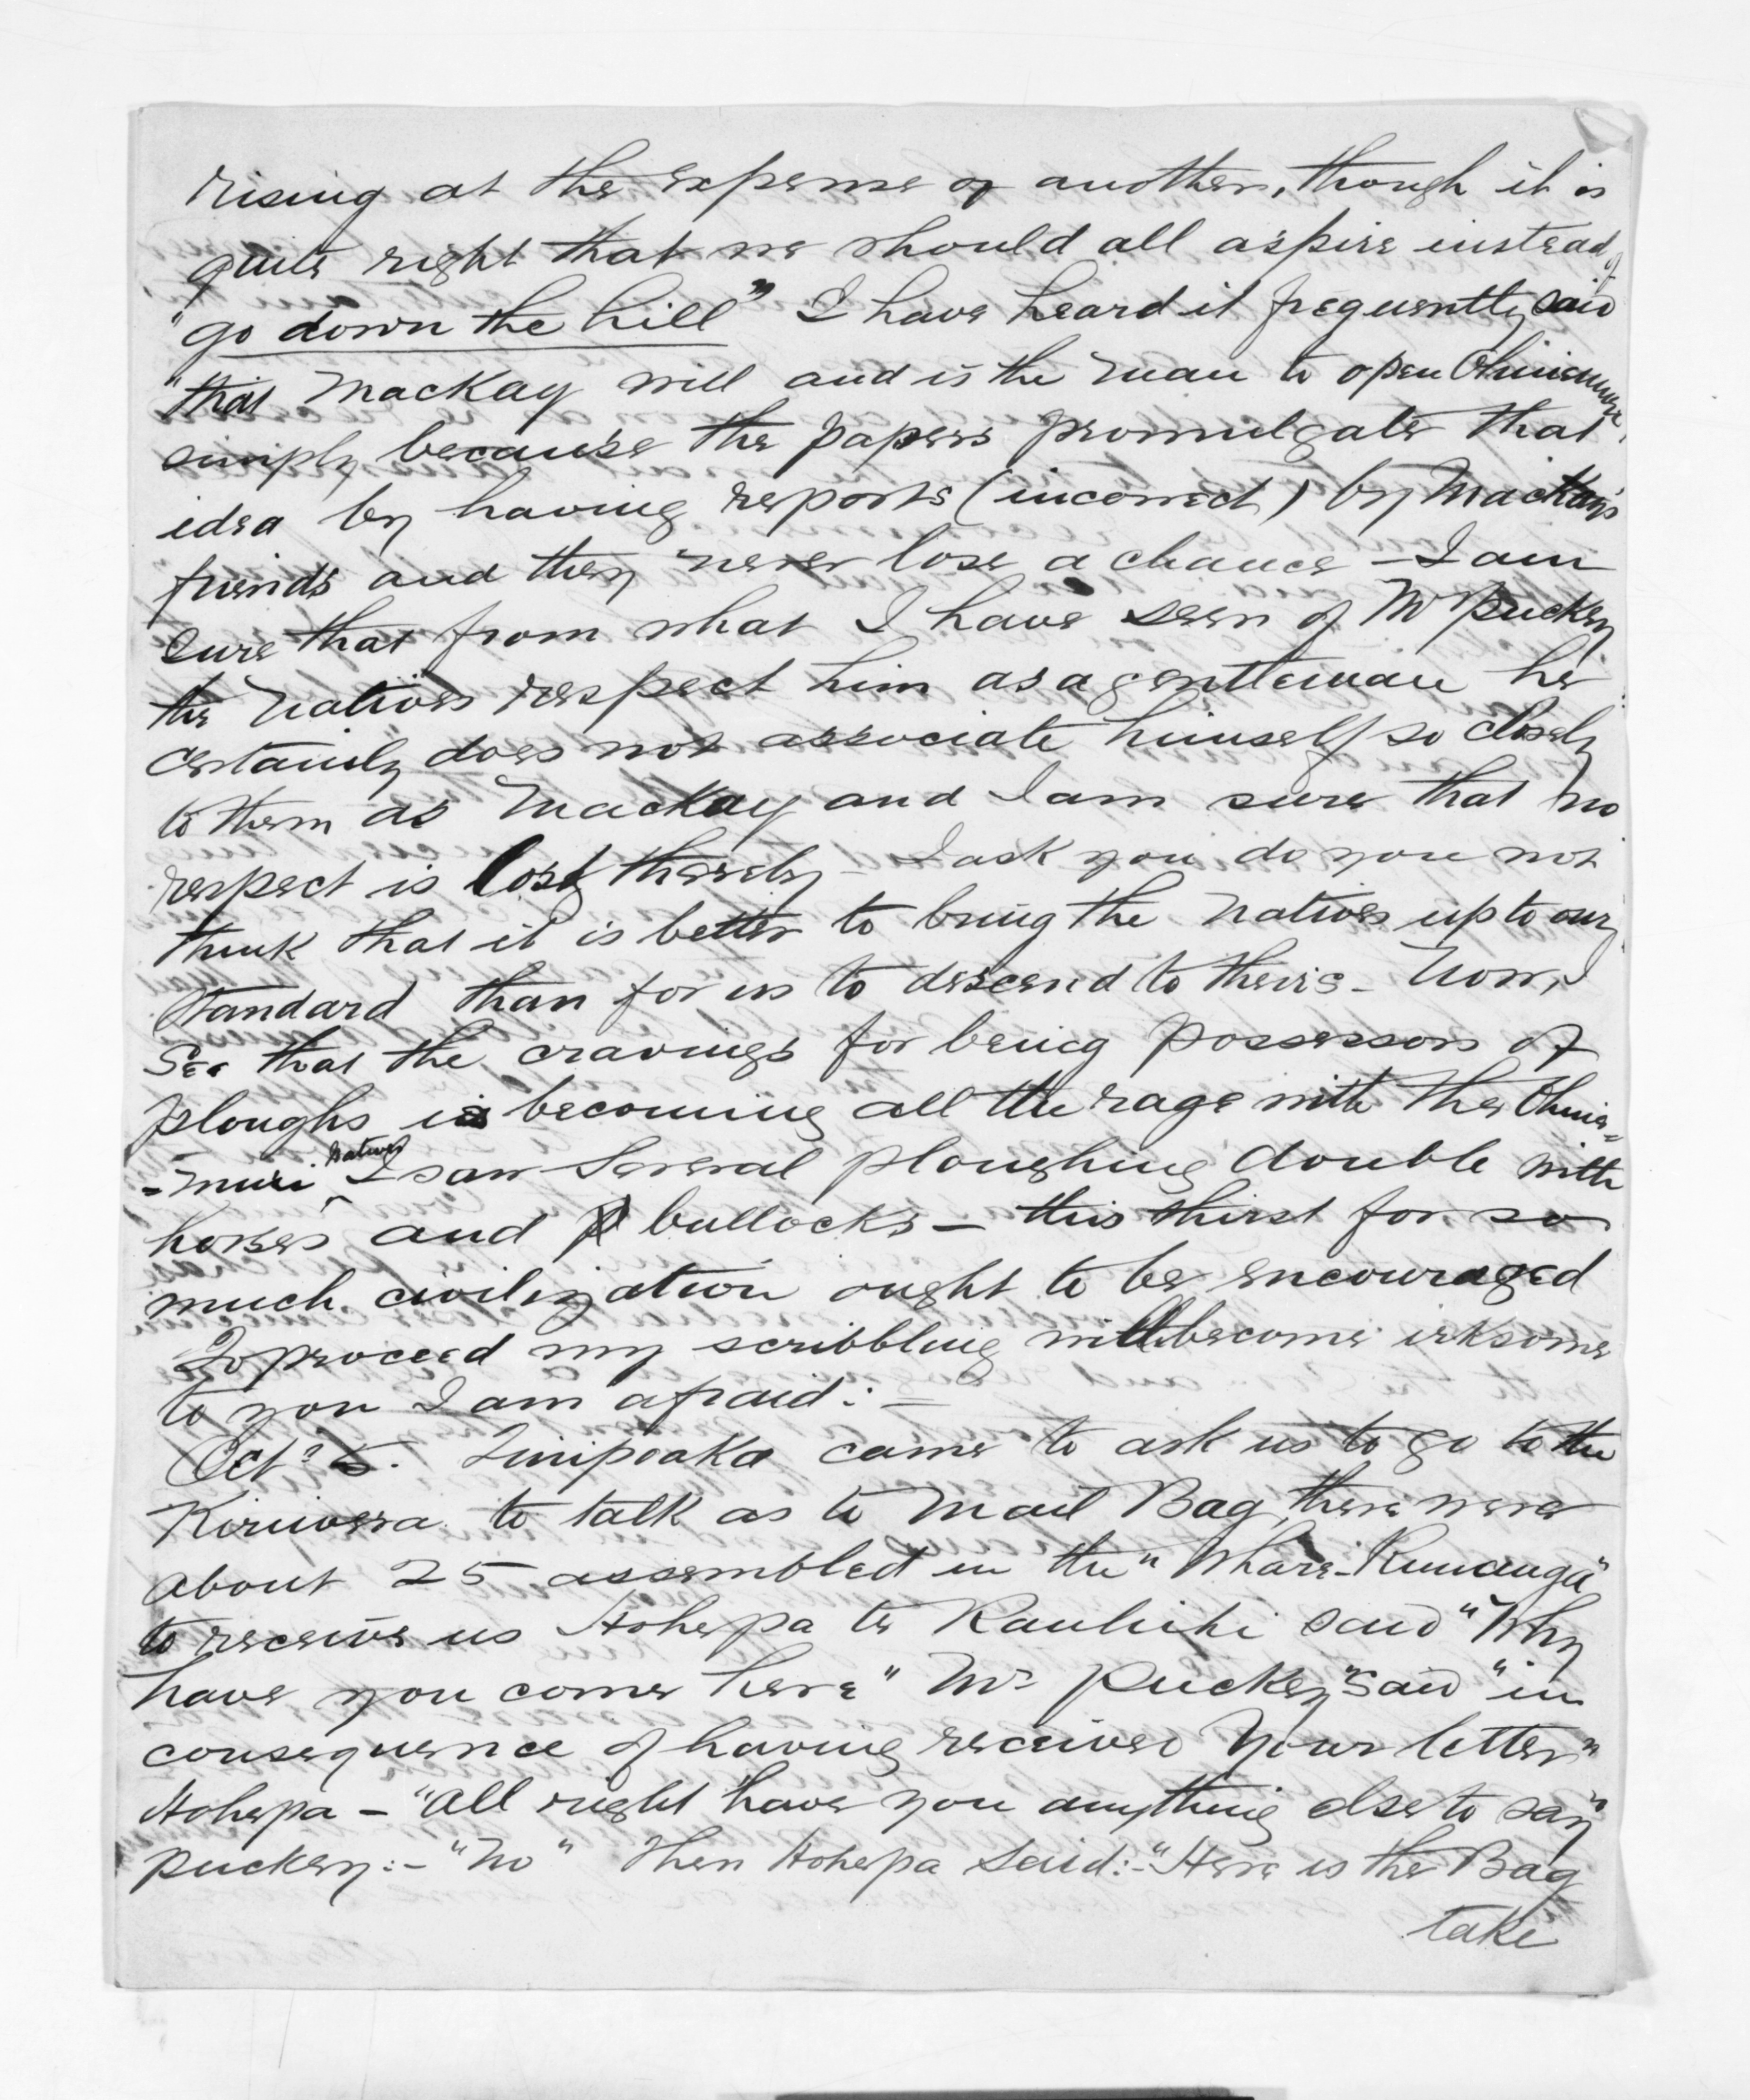 rising at the expense of another, though it is
quite right that we should all aspire instead of
"go down the hill" I have heard it frequently said
"that MacKay will and is the man to open Ohinemuri,
simply because the papers promulgate that
idea by having reports (incorrect) by MacKay's
friends and they never lose a chance – I am
sure that from what I have seen of Mr Puckey
the Natives respect him as a gentleman he
certainly does not associate himself so closely
to them as MacKay and I am sure that no
respect is lost thereby – I ask you do you not
think that it is better to bring the Natives up to our
standard than for us to descend to theirs – Now, I
See that the cravings for being possessors of
ploughs is becoming all the rage with the Ohine=
=muri Natives I saw several ploughing double with
horses and bullocks – this thirst for so
much civilization ought to be encouraged
To proceed my scribbling will become irksome
to you I am afraid: –
Oct 5. Tinipoaka came to ask us to go to the
Kiriwera to talk as to Mail Bag, there were
about 25 assembled in the "Whare-Runanga"
to receive us Hohepa te Rauhihi said "Why
have you come here" Mr Puckey "said "in
consequence of having received your letter"
Hohepa – "all right have you anything else to say"
Puckey: – "No" Then Hohepa said: – "Here is the Bag
take